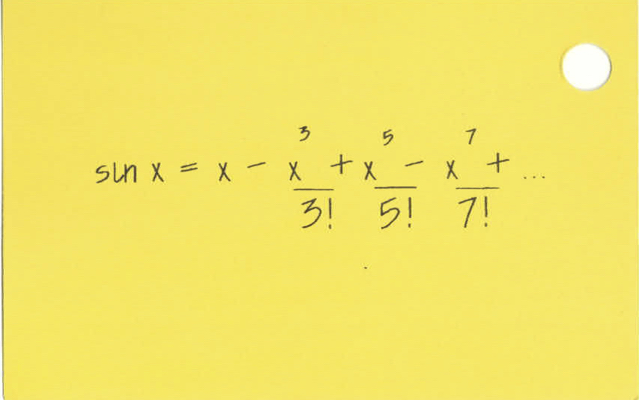 sin x = x - x^3/3! + x^5/5! - x^7/7! + ...